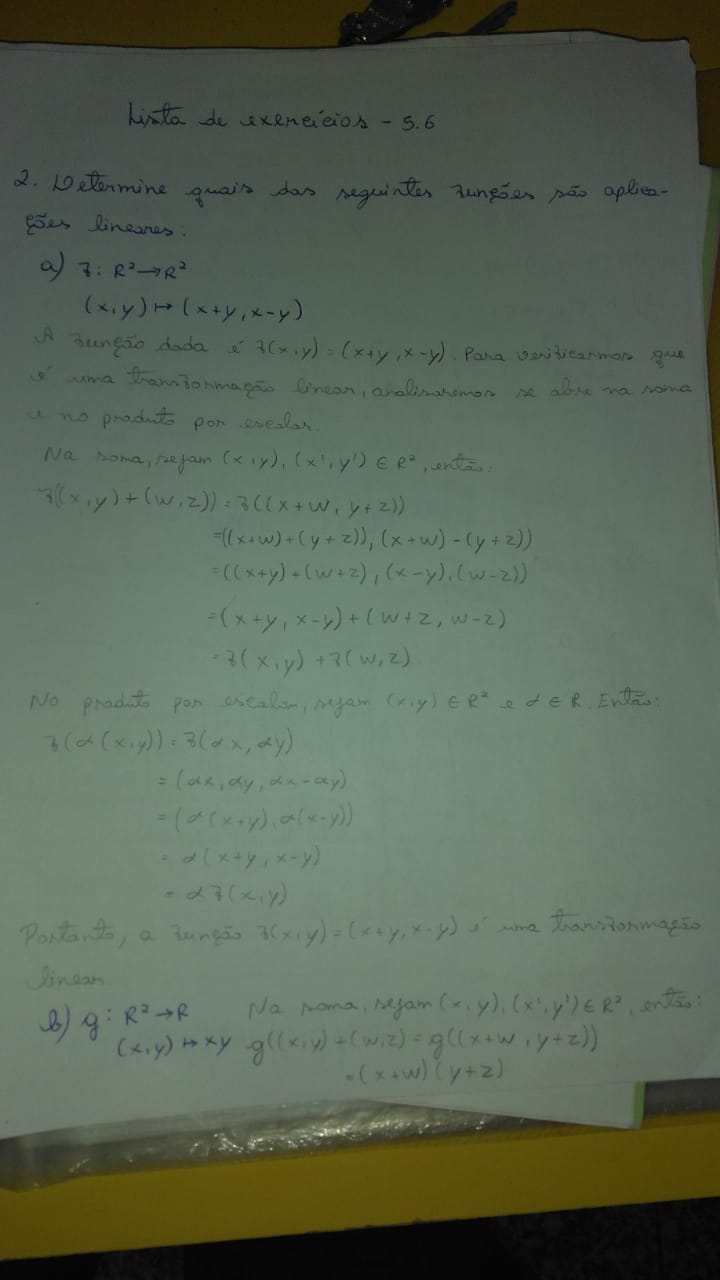 Lista de exercícios - 5.6
2. Determine quais das seguintes funções são aplica-
ções lineares:
a) f: R²→R²
(x,y) ↦ (x+y, x-y)
A função dada é f(x,y) = (x+y, x-y). Para verificarmos que
é uma transformação linear, analisaremos se abre na soma
e no produto por escalar.
Na soma, sejam (x,y), (x',y') ∈ R², então:
f((x,y)+(w,z)) = f((x+w, y+z))
=((x+w)+(y+z)), (x+w)-(y+z))
=((x+y)+(w+z), (x-y),(w-z))
=(x+y, x-y)+(w+z, w-z)
=f(x,y)+f(w,z)
No produto por escalar, sejam (x,y) ∈ R² e α ∈ R. Então:
f(α(x,y)) = f(αx, αy)
= (αx, αy, αx-αy)
= (α(x+y), α(x-y))
= α(x+y, x-y)
= αf(x,y)
Portanto, a função f(x,y) = (x+y, x-y) é uma transformação
linear.
b) g: R²→R Na soma, sejam (x,y), (x',y') ∈ R², então:
(x,y) ↦ xy g((x,y)+(w,z) = g((x+w, y+z))
=(x+w)(y+z)